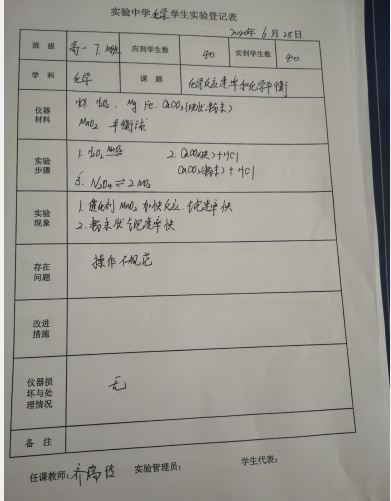 实验中学化学学生实验登记表
2020年6月28日
班级 高一7.10班 应到学生数 40 实到学生数 40
学科 化学 课题 化学反应速率和化学平衡
仪器材料 HCl H₂O₂、Mg Fe CaCO₃(块状.粉末)
MnO₂ 平衡球
实验步骤 1. H₂O₂ MnO₂ 2. CaCO₃(块)+HCl
CaCO₃(粉末)+HCl
3. N₂O₄⇌2NO₂
实验现象 1.催化剂MnO₂加快反应速率快
2.粉末状速率快
存在问题 操作不规范
改进措施
仪器损坏与处理情况 无
备注
任课教师: 实验管理员: 学生代表: